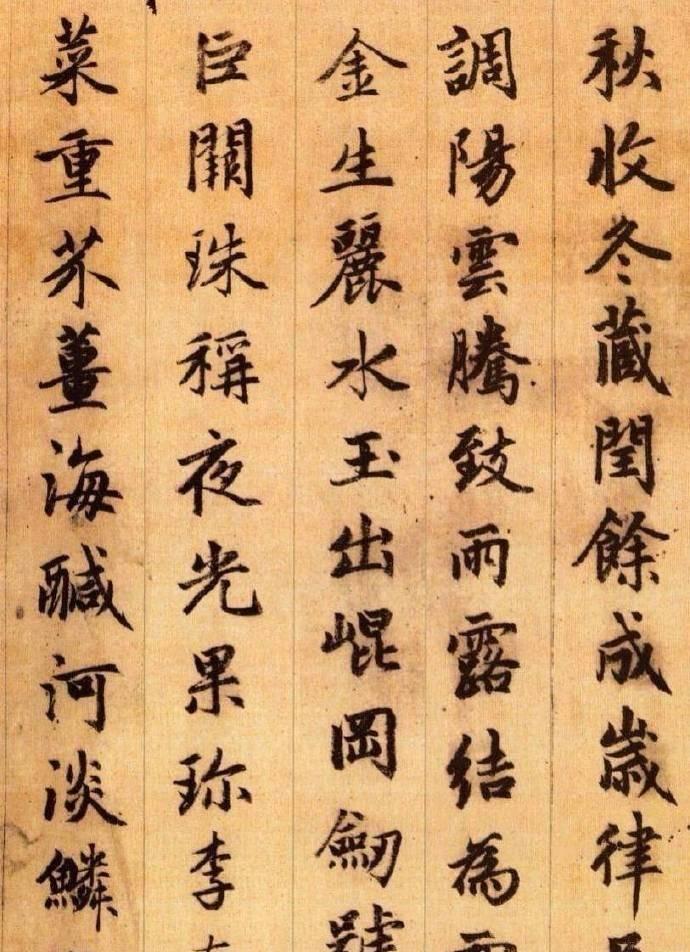 秋收冬藏閏餘成歲律
調陽雲騰致雨露結為
金生麗水玉出崐岡劒號
巨闕珠稱夜光果珎李
菜重芥薑海醎河淡鱗